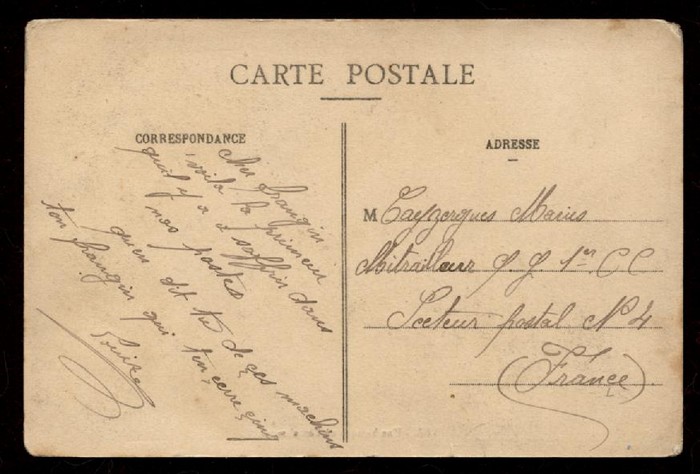 CARTE POSTALE
CORRESPONDANCE
cher frangin
voilà la primeur
quil y a a saffir dans
nos postes
quen dit tu de ces machins
ton frangin qui ten serre cinq
Louise
ADRESSE
M Cayzergues Marius
Mitrailleur 1er CC
Secteur postal N° 4
(France)